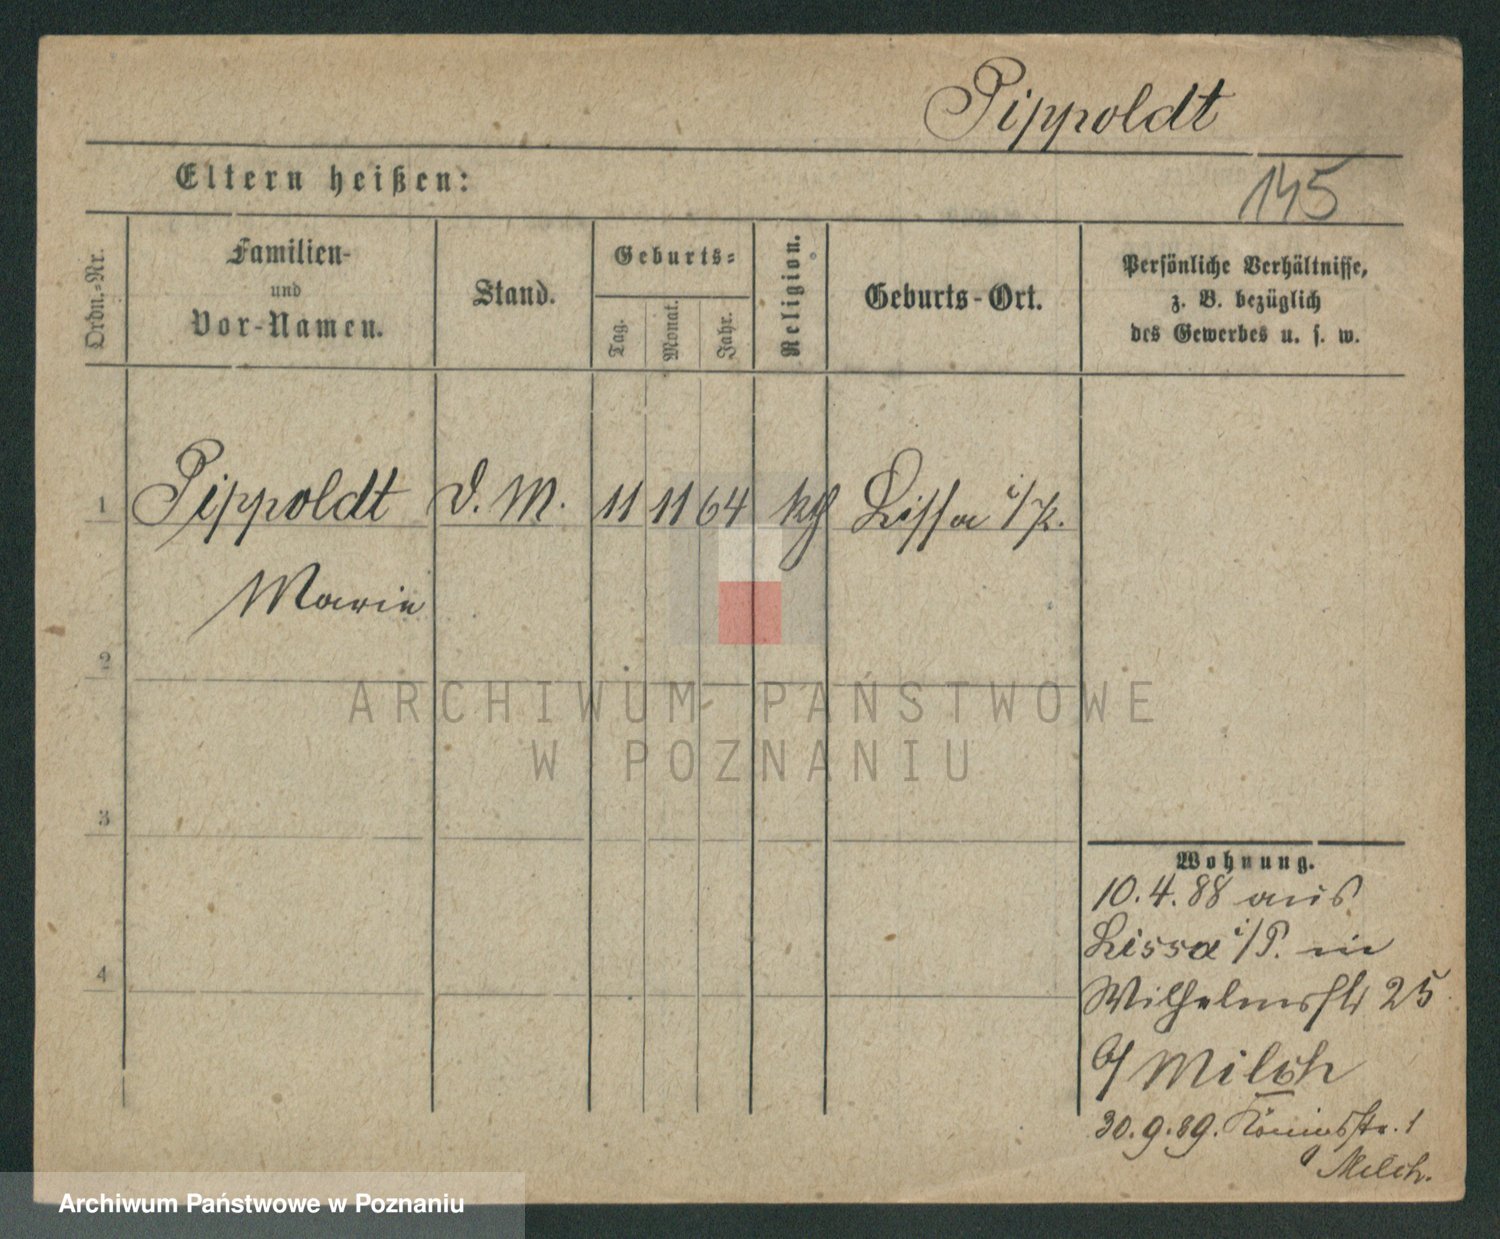 Pippoldt
Eltern heißen:
145
Ordn.-Nr.
Familien-
und
Vor-Namen.
Stand.
Geburts-
Tag.
Monat.
Jahr.
Religion.
Geburts-Ort.
Persönliche Verhältnisse,
z. B. bezüglich
des Gewerbes u. s. w.
1 Pippoldt D. M. 11 11 64 kth Lissa i/P.
Marie
2
ARCHIWUM PAŃSTWOWE
W POZNANIU
3
4
Wohnung.
10.4.88 aus
Lissa i/P. in
Wilhelmstr 25
b/ Milch
30.9.89. Königsstr. 1
Milch.
Archiwum Państwowe w Poznaniu